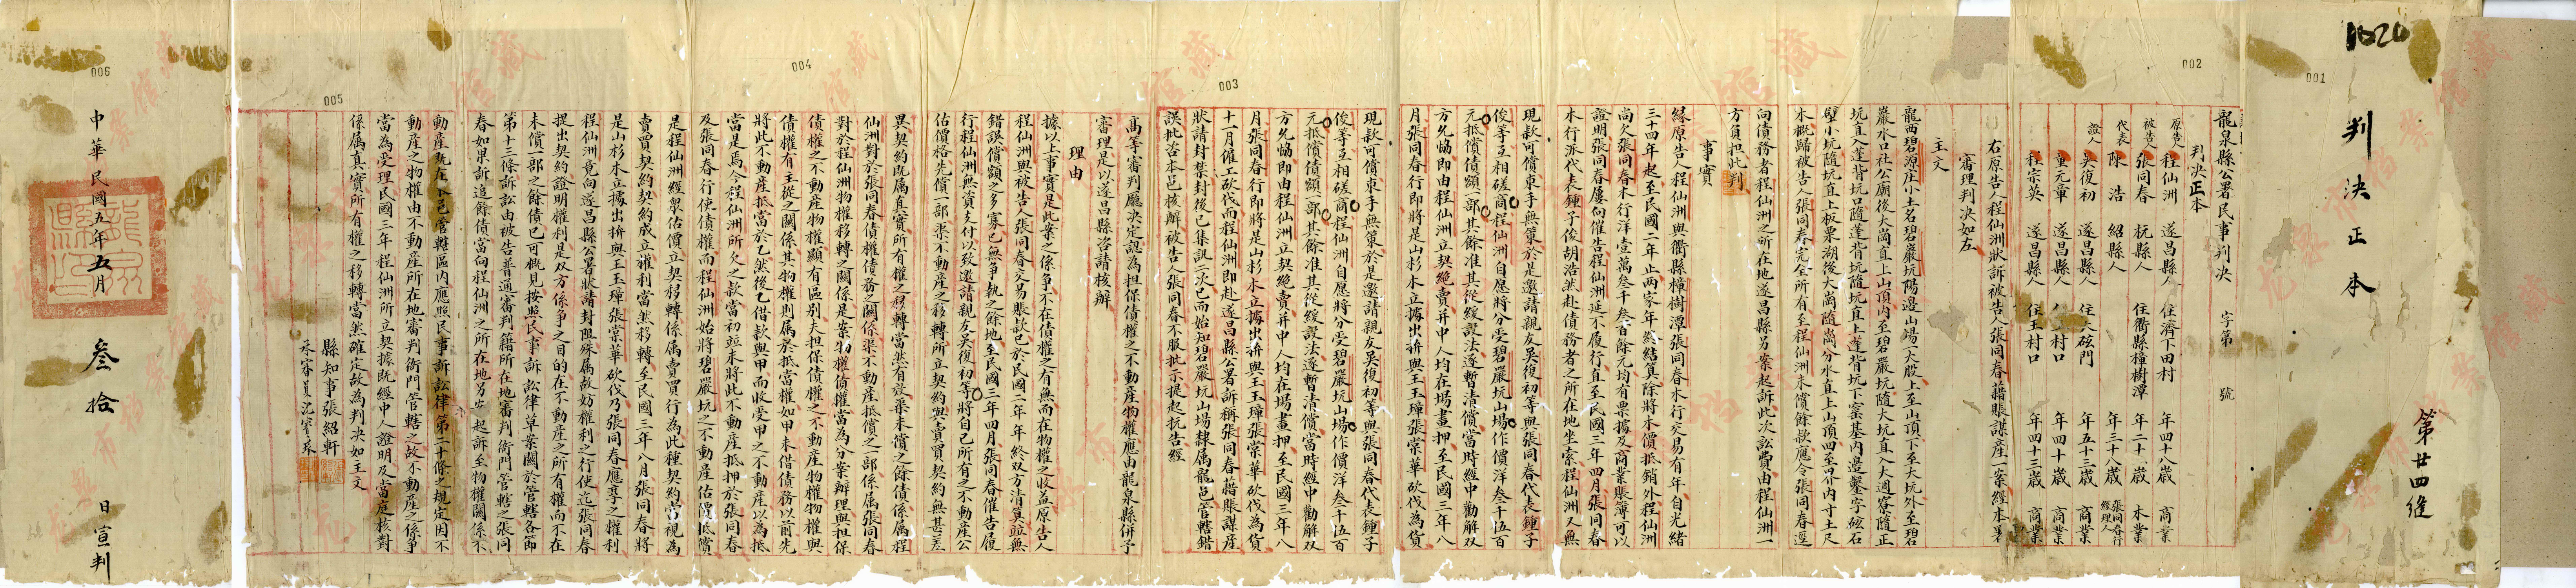 1020
001
判決正本
第廿四継
002
龍泉縣公署民事判決　字第　號
判決正本
原告人 程仙洲 遂昌縣人 住濟下田村 年四十八歲 商業
被告人 張同春 杭縣人 住衢縣樟樹潭 年二十八歲 木業
代表 陳浩 紹縣人 年三十八歲 張同春行經理人
證人 吳復初 遂昌縣人 住大砝門 年五十三歲 商業
童元童 遂昌縣人 住王村口 年四十歲 商業
程宗英 遂昌縣人 住王村口 年四十三歲 商業
右原告人程仙洲狀訴被告人張同春藉賬謀産一案經本署
審理判決如左
主文
龍西碧源庄小土名碧巖坑陽邊山塲一大股上至山頂下至大坑外至碧
巖水口社公廟後大崗直上山頂內至碧巖坑隨大坑直入大週寮隨正
坑直入蓬背坑口隨蓬背坑隨坑直上蓬背坑下窯基內邊鑿字砝石
壁小坑隨坑直上板栗湖後大崗隨崗分水直上山頂四至界內寸土尺
木概歸被告人張同春完全所有至程仙洲未償餘款應令張同春逕
向債務者程仙洲之所在地遂昌縣另案起訴此次訟費由程仙洲一
方負担此判
事實
緣原告人程仙洲與衢縣樟樹潭張同春木行交易有年自光緒
三十四年起至民國二年止兩家年終結算除將木價抵銷外程仙洲
尚欠張同春木行洋壹萬叁千叁百餘元均有票據及商業賬簿可以
證明張同春屢向催告程仙洲延不履行直至民國三年四月張同春
木行派代表鍾子俊胡浩然赴債務者之所在地坐索程仙洲又無
現款可償束手無策於是邀請親友吳復初等與張同春代表鍾子
俊等互相磋商程仙洲自愿將分受碧巖坑山塲作價洋叁千伍百
元抵償債額一部其餘准其從緩設法逐暫清償當時經中勸解双
方允恊即由程仙洲立契絶賣并中人均在塲畫押至民國三年八
月張同春行即將是山杉木立據出拚與王玉璋張棠華砍伐為貨
現款可償束手無策於是邀請親友吳復初等與張同春代表鍾子
俊等互相磋商程仙洲自愿將分受碧巖坑山塲作價洋叁千伍百
元抵償債額一部其餘准其從緩設法逐暫清償當時經中勸解双
方允恊即由程仙洲立契絶賣并中人均在塲畫押至民國三年八
月張同春行即將是山杉木立據出拚與王玉璋張棠華砍伐為貨
003
十一月僱工砍伐而程仙洲即赴遂昌縣公署訴稱張同春藉賬謀産
狀請封禁封後已集訊二次已而始知碧巖坑山塲隸属龍邑管轄錯
誤批咨本邑核辦被告人張同春不服批示提起抗告經
高等審判廳決定認為担保債權之不動産物權應由龍泉縣併予
審理是以遂昌縣咨請核辦
理由
據以上事實是此案之係爭不在債權之有無而在物權之收益原告人
程仙洲與被告人張同春交易賬款已於民國二年年終双方清算並無
錯誤債額之多寡已無爭執之餘地至民國三年四月張同春催告履
行程仙洲無資支付以致邀請親友吳復初等將自己所有之不動産公
估價格先償一部張不動産之移轉所立契約與賣買契約無甚差
異契約既属真實所有權之移轉當然有效至未償之餘債係属程
仙洲對於張同春債權債務之關係至不動産抵償之一部係属張同春
對於程仙洲物權移轉之關係是案物權債權當為分案辦理與担保
債權之不動産物權顯有區别夫担保債權之不動産物權物權與
債權有主從之關係其物權則属於抵當權如甲未借債務以前先
004
將此不動産抵當於乙然後乙借款與甲而收受甲之不動産以為抵
當是焉今程仙洲所欠之款當初並未將此不動産抵押於張同春
及張同春行使債權而程仙洲始將碧巖坑之不動産估價抵償
是程仙洲經衆估價立契移轉係属賣買行為此種契約當視為
賣買契約契約成立權利當然移轉至民國三年八月張同春將
是山杉木立據出拚與王玉璋張棠華砍伐乃張同春應享之權利
程仙洲竟向遂昌縣公署狀請封阻殊属故妨權利之行使迄張同春
提出契約證明權利是双方係爭之目的在不動産之所有權而不在
未償一部之餘債已可概見按照民事訴訟律草案關於管轄各節
第十三條訴訟由被告普通審判籍所在地審判衙門管轄之張同
春如果訴追餘債當向程仙洲之所在地另案起訴至物權關係不
動産既在本邑管轄區內應照民事訴訟律第二十條之規定因不
動産之物權由不動産所在地審判衙門管轄之故不動産之係爭
當為受理民國三年程仙洲所立契據既經中人證明及當庭核對
係属真實所有權之移轉當然確定故為判決如主文
005
縣知事張紹軒
承審員沈寶瑔
006
中華民國五年五月 叁拾 日宣判
龍泉縣印